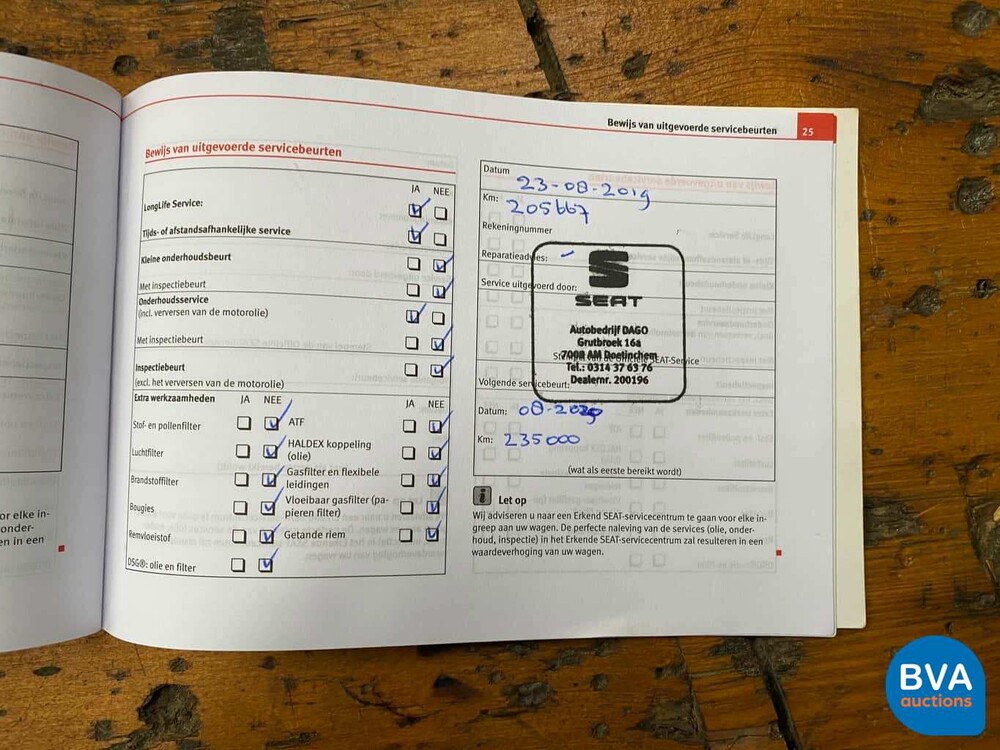 Bewijs van uitgevoerde servicebeurten 25
Bewijs van uitgevoerde servicebeurten
JA NEE
LongLife Service:
Tijds- of afstandsafhankelijke service
Kleine onderhoudsbeurt
Met inspectiebeurt
Onderhoudsservice
(incl. verversen van de motorolie)
Met inspectiebeurt
Inspectiebeurt
(excl. het verversen van de motorolie)
Extra werkzaamheden JA NEE JA NEE
Stof- en pollenfilter
ATF
Luchtfilter
HALDEX koppeling
(olie)
Brandstoffilter
Gasfilter en flexibele
leidingen
Bougies
Vloeibaar gasfilter (pa-
pieren filter)
Remvloeistof
Getande riem
DSG®: olie en filter
Datum 23-08-2019
Km: 205667
Rekeningnummer
Reparatieadvies:
Service uitgevoerd door:
SEAT
Autobedrijf DAGO
Grutbroek 16a
7008 AM Doetinchem
SEAT-Service
Tel.: 0314 37 63 76
Dealernr. 200196
Volgende servicebeurt:
Datum: 08-2020
Km: 235000
(wat als eerste bereikt wordt)
Let op
Wij adviseren u naar een Erkend SEAT-servicecentrum te gaan voor elke in-
greep aan uw wagen. De perfecte naleving van de services (olie, onder-
houd, inspectie) in het Erkende SEAT-servicecentrum zal resulteren in een
waardeverhoging van uw wagen.
or elke in-
onder-
en in een
BVA
auctions